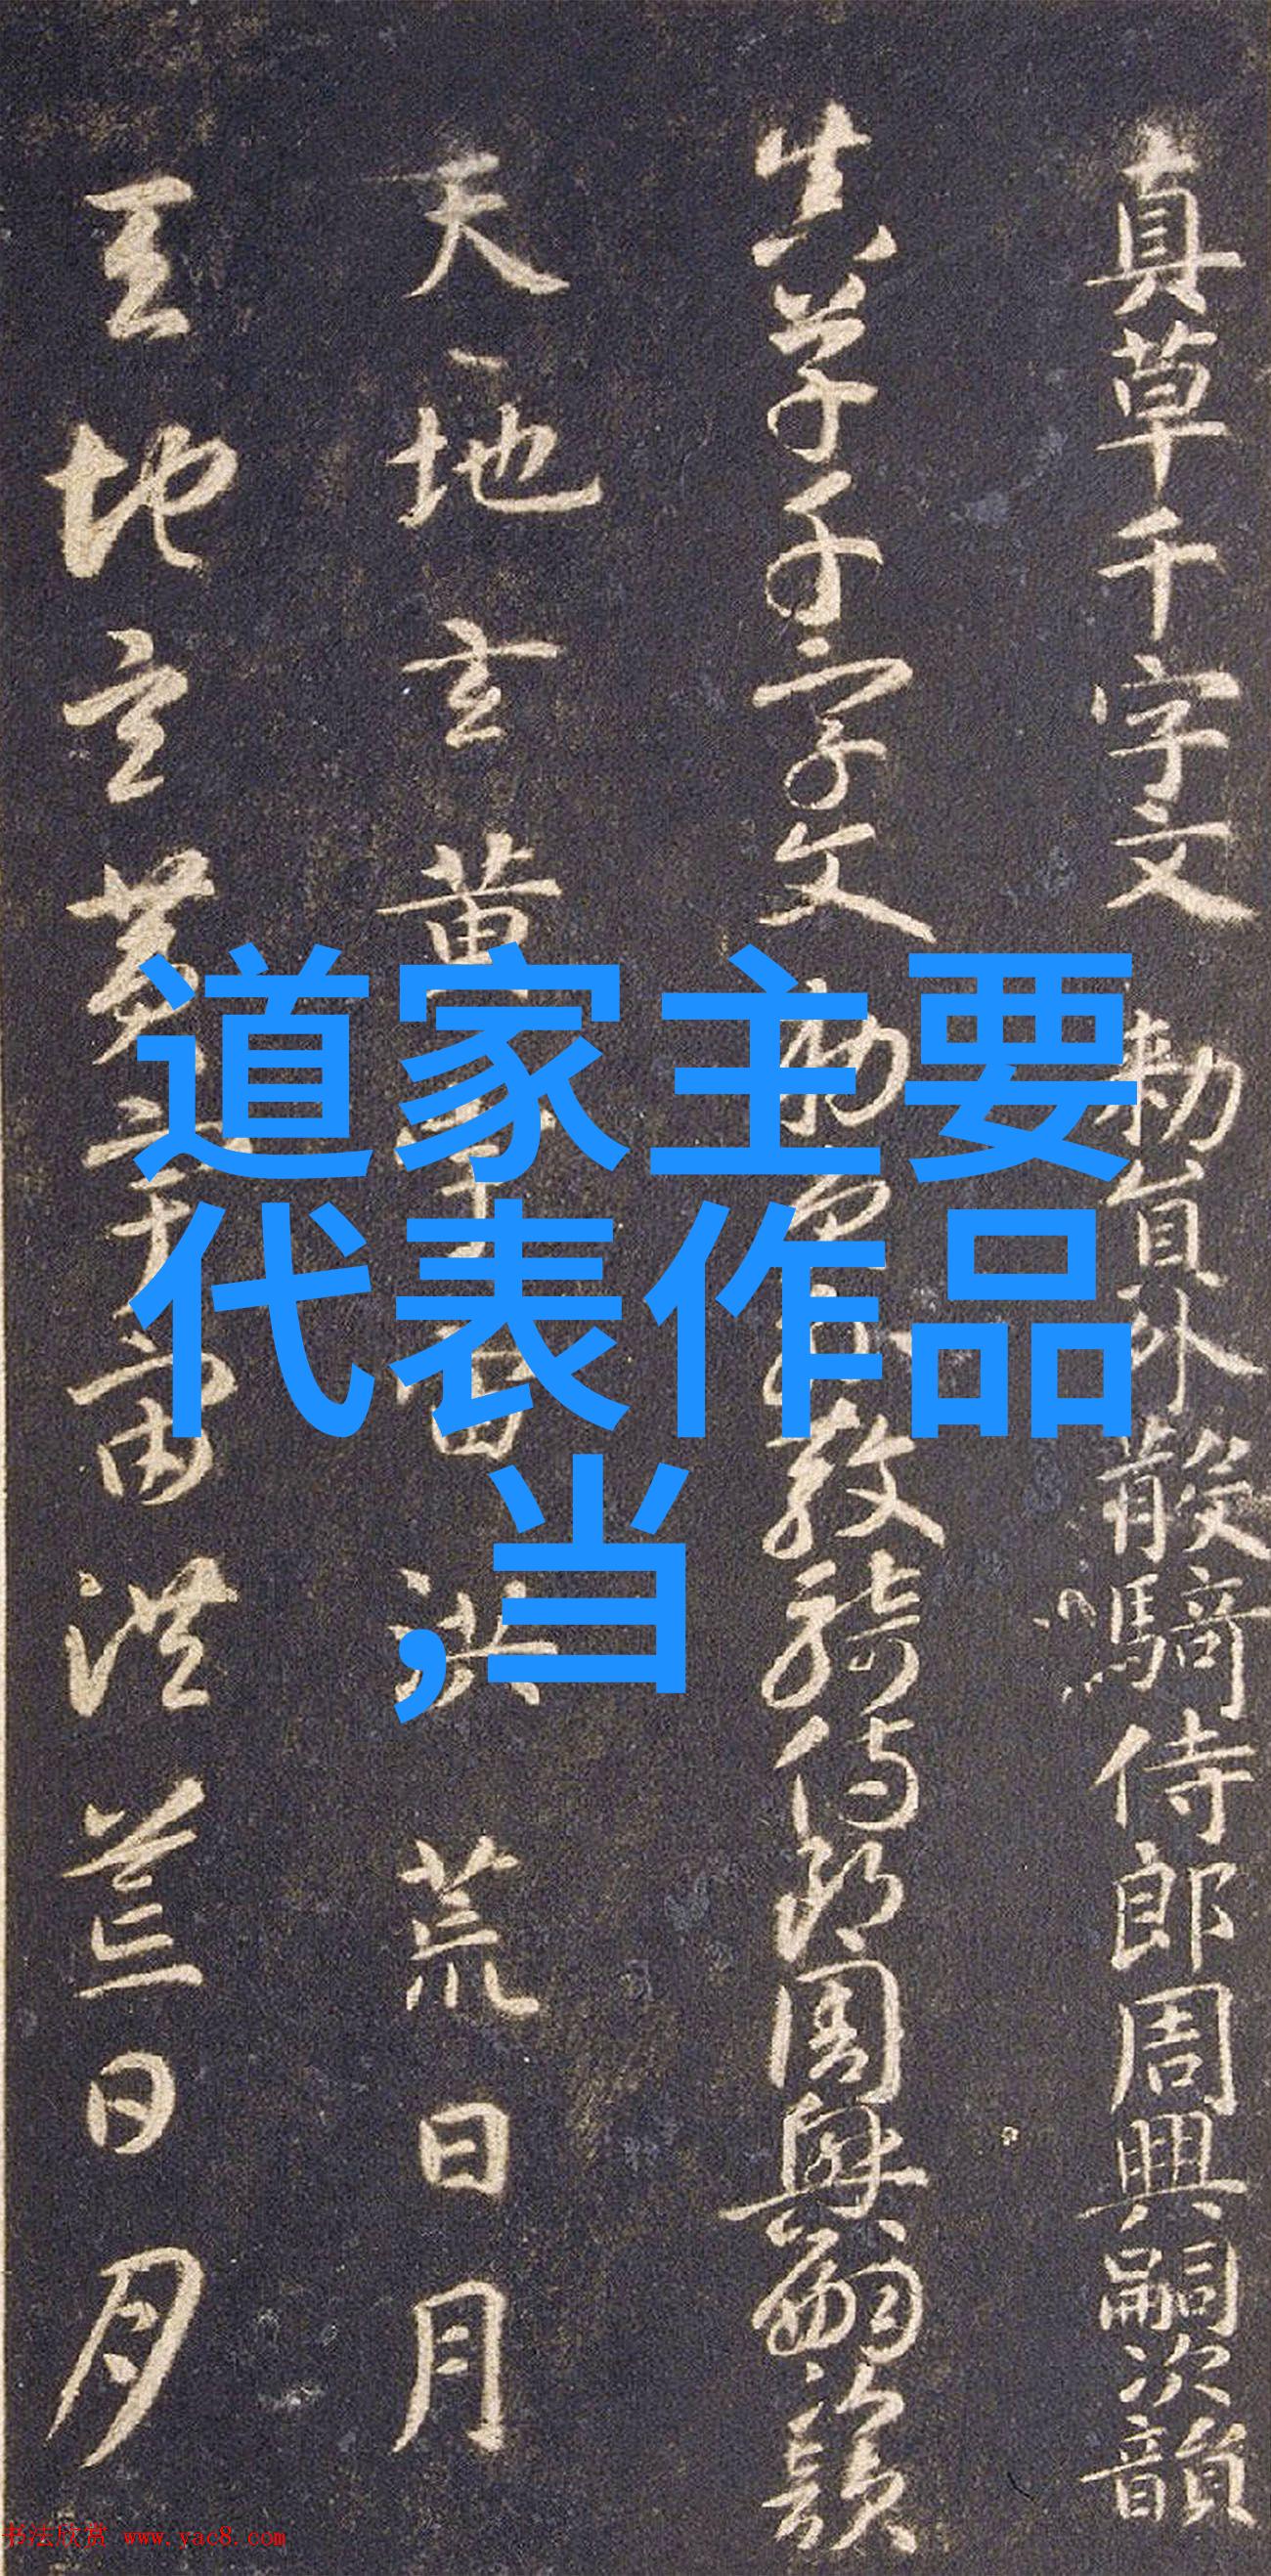 真草千字文 勅員外散騎侍郎周興嗣次韻
真草千字文 勅員外散騎侍郎周興嗣次韻
天地玄黄宇宙洪荒日月
天地玄黄宇宙洪荒日月
道家主要
代表作品
,当
书法欣赏 www.yac8.com